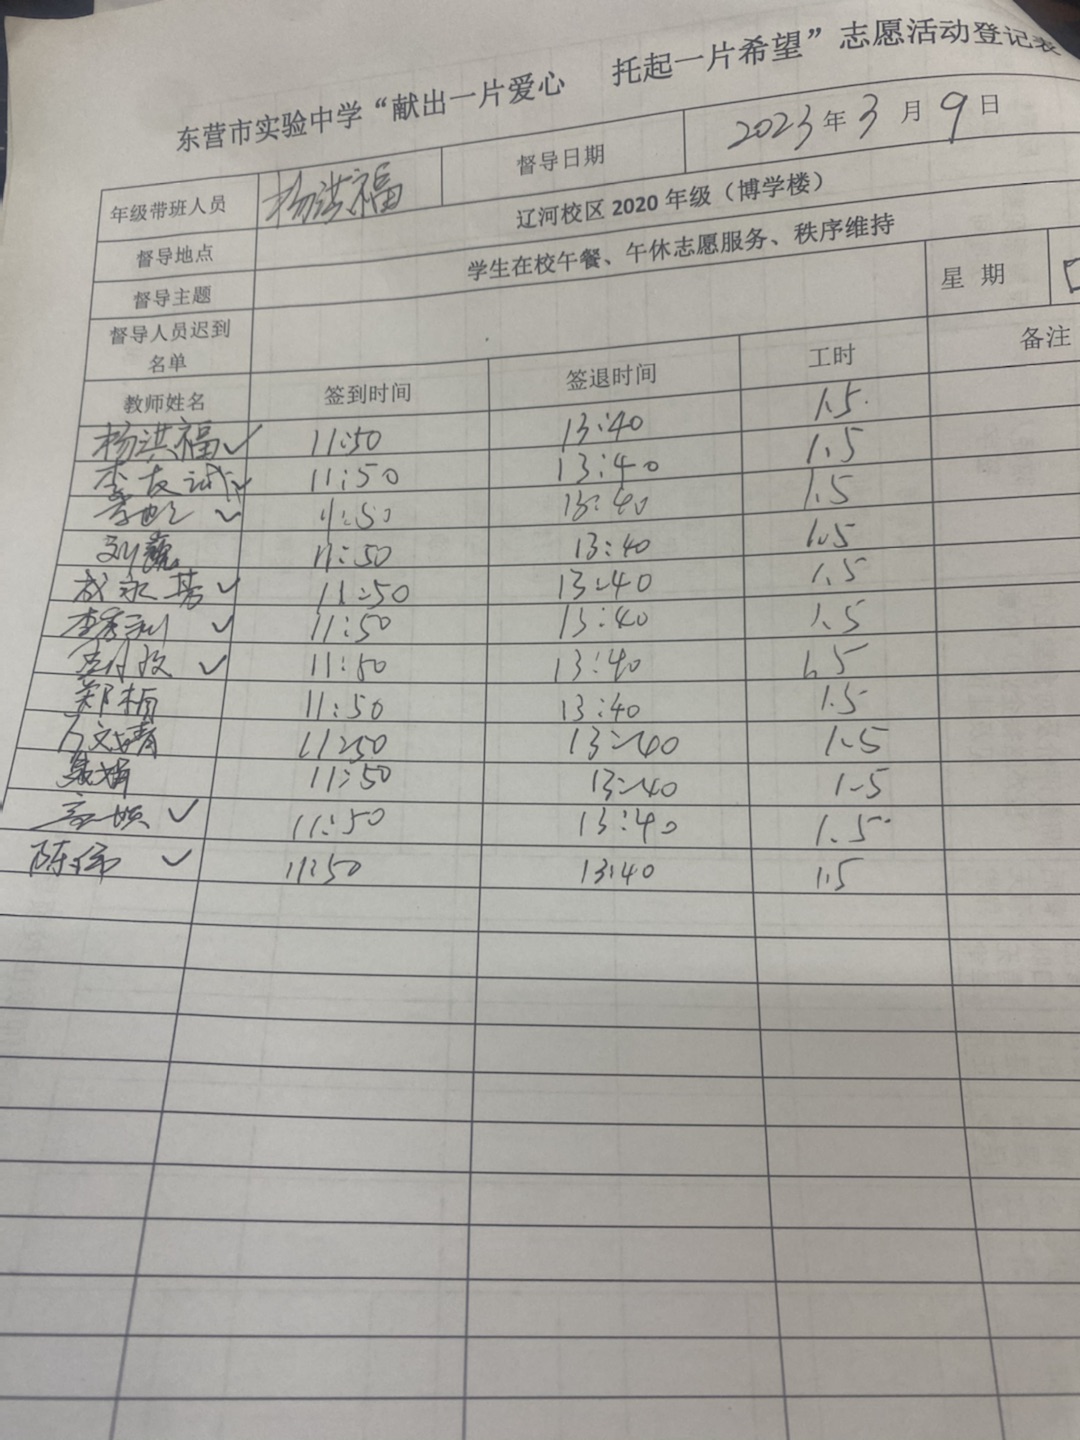 东营市实验中学“献出一片爱心 托起一片希望”志愿活动登记表
年级带班人员 杨洪福 督导日期 2023年3月9日
督导地点 辽河校区2020年级（博学楼）
督导主题 学生在校午餐、午休志愿服务、秩序维持
督导人员迟到名单 星 期
教师姓名 签到时间 签退时间 工时 备注
杨洪福✓ 11:50 13:40 1.5
李友试✓ 11:50 13:40 1.5
✓ 11:50 13:40 1.5
刘巍 11:50 13:40 1.5
成永基✓ 11:50 13:40 1.5
李秀利 ✓ 11:50 13:40 1.5
✓ 11:50 13:40 1.5
郑楠 11:50 13:40 1.5
文婧 11:50 13:40 1.5
11:50 13:40 1.5
✓ 11:50 13:40 1.5
陈伟 ✓ 11:50 13:40 1.5